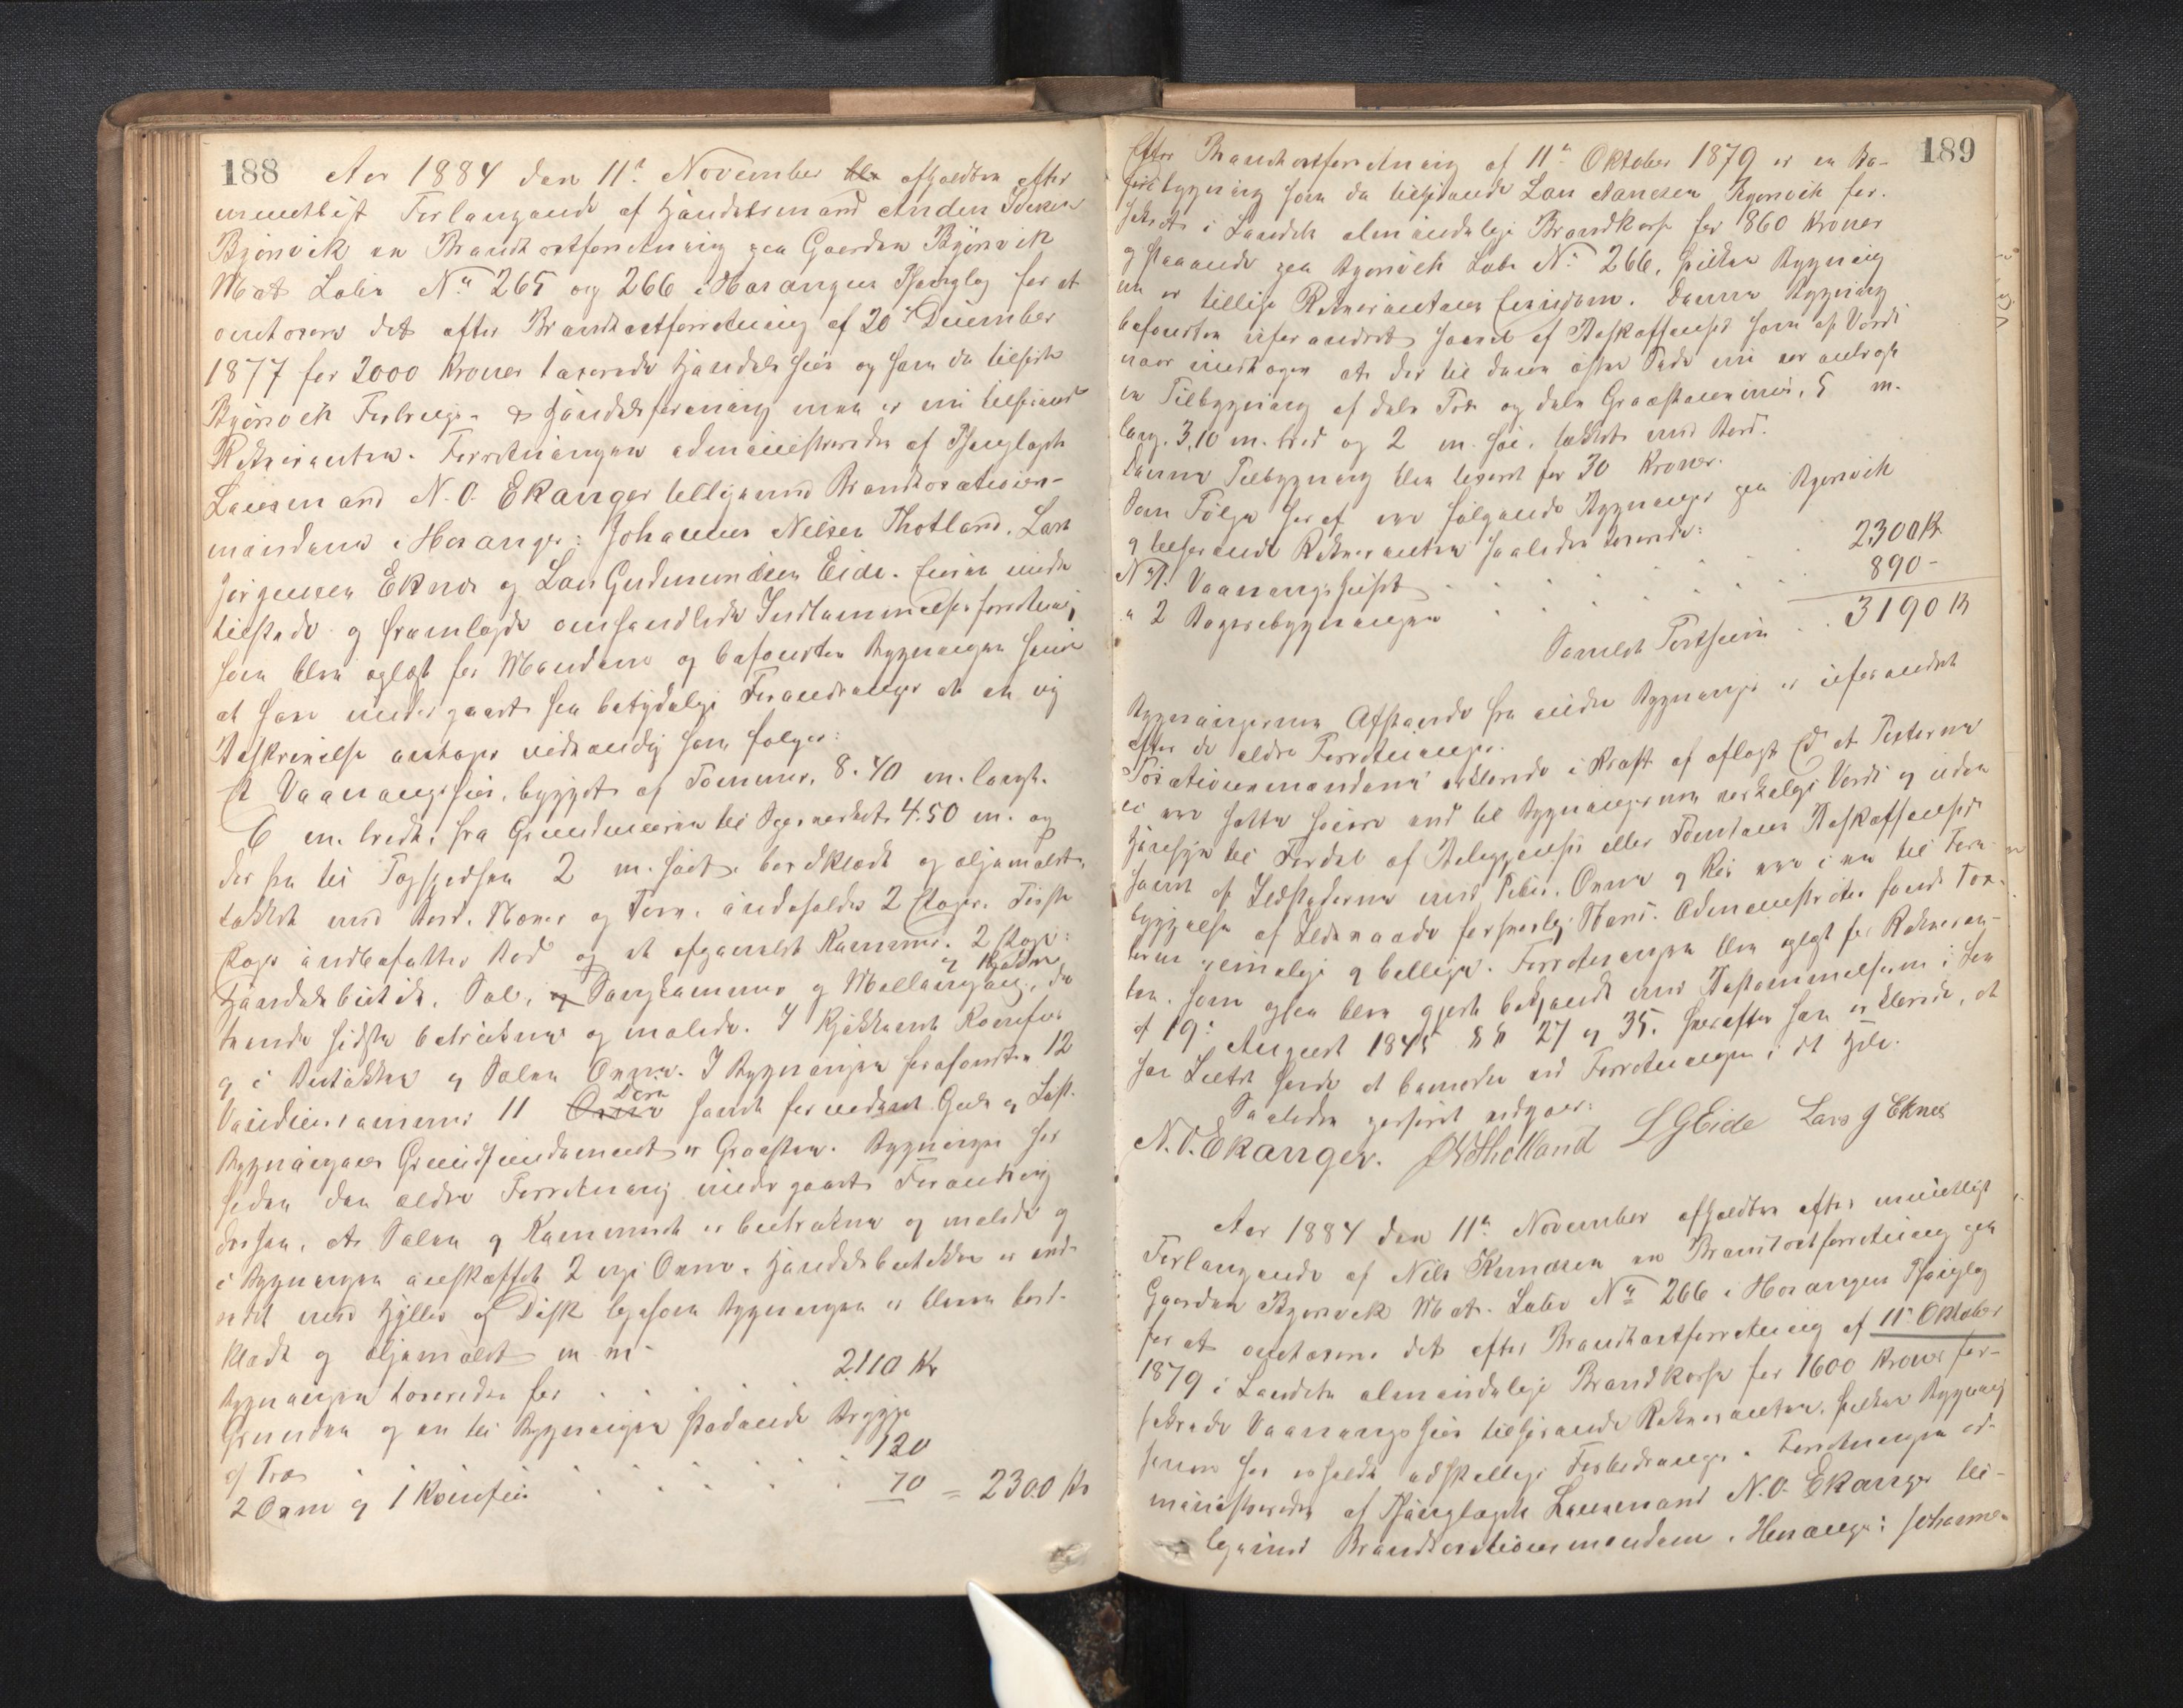 188
Aar 1884 den 11te November blev afholdtes efter
mundtligt Forlangende af Handelsmand Anders
Bjørsvik en Brandtaxtforretning paa Gaarden Bjørsvik
Mat Løbe No 265 og 266 i Hosanger Thinglag for at
omtaxere det efter Brandtaxtforretning af 20de December
1877 for 2000 Kroner taxerede Handelshuus og som da tilhørte
Bjørsvik Forbrugs- & Handelsforening men er nu tilhørende
Rekvirenten. Forretningen administreredes af Thinglagets
Lensmand N. O. Ekanger tilligemed Brandtaxations-
mændene i Hosanger: Johannes Nilsen Tholland, Lars
Jørgensen Eknes og Lars Gudmundsen Eide. Eieren mødte
tilstede og fremlagde omhandlede Indlemmelsesforretning
som blev oplæst for Mændene og befandtes Bygningen senere
at have undergaaet saa betydelige Forandringer at en ny
Beskrivelse ansaaes nødvendig som følger:
Et Vaaningshuus, bygget af Tømmer, 8.40 m. langt.
6 m. bredt, fra Grundmuren til Tagskjægget 4.50 m. og
derfra til Tagspidsen 2 m. høit, bordklædt og oljemalet,
tækket med Bord, Næver og Torv, indeholder 2 Etager. Første
Etage indbefatter Bod og et afpanelet Kammer. 2 Etage:
Handelsbutik, Sal, og Sengkammer og Mellemgang, og Kjøkken, de
trende sidste betrukne og malede. I Kjøkkenet Komfur
og i Butikken og Salen Ovne. I Bygningen forefandtes 12
Vinduesrammer 11 Ovne Døre samt fornødent Gulv og Loft.
Bygningens Grundfundament er Graasten. Bygningen har
siden den ældre Forretning undergaaet Forandring
derhen, at Salen og Kammeret er betrukne og malede og
i Bygningen anskaffet 2 nye Ovne. Handelsbutikken er ind-
redet med Hylder og Disk ligesom Bygningen er bleven bord-
klædt og oljemalet m. m.
Bygningen taxeredes for . . . . . 2110 Kr
Grunden og en til Bygningen stødende Brygge
af Træ . . . . . . . 120
2 Ovne og 1 Komfur . . . . . 70 = 2300 Kr
189
Efter Brandtaxtforretning af 11te Oktober 1879 er en
bygning som da tilhørende Lars Hansen Bjørsvik for-
sikret i Landets almindelige Brandkasse for 860 Kroner
og staaende paa Bjørsvik Løbe No 266, hvilken Bygning
nu er tillige Rekvirentens Eiendom. Denne Bygning
befandtes uforandret saavel af Beskaffenhed som af Værdi
naar undtages at der til dens østre Side nu var anbragt
en Tilbygning af dels Træ og dels Graastensmuur, 5 m.
lang. 3,10 m. bred og 2 m. høi, tækket med Bord.
Denne Tilbygning blev taxeret for 30 Kroner.
Som Følge heraf ere følgende Bygninger paa Bjørsvik
og tilhørende Rekvirenten saaledes taxerede:
No 1. Vaaningshuset . . . . . 2300 Kr
" 2 Bageribygningen . . . . . 890 -
Samlet Taxtsum . . 3190 Kr
Bygningernes Afstande fra andre Bygninger er uforandret
efter de ældre Forretninger.
Taxationsmændene erklærede i Kraft af aflagt Ed at Taxterne
ei ere satte høiere end til Bygningernes virkelige Værdi og uden
Hensyn til Fordel af Beliggenhed eller Tomtens Beskaffenhed
samt at Ildstederne med Piber. Ovne og Rør ere i en til Fore-
byggelse af Ildsvaade forsvarlig Stand. Administrator fandt Tax-
terne rimelige og billige. Forretningen blev oplæst for Rekviren-
ten. som ogsaa blev gjort bekjendt med Bestemmelserne i Lov
af 19de August 1845 §§ 27 og 35. hvorefter han erklærede, at
han Intet havde at bemærke ved Forretningen i det Hele.
Saaledes passeret udgaar:
N. O. Ekanger. J N Tholland L G Eide Lars J Eknes
Aar 1884 den 11te November afholdtes efter mundtligt
Forlangende af Nils Knudsen en Brandtaxtforretning paa
Gaarden Bjørsvik Mat. Løbe No 266 i Hosanger Thinglag
for at omtaxere det efter Brandtaxtforretning af 11te Oktober
1879 i Landets almindelige Brandkasse for 1600 Kroner for-
sikrede Vaaningshuus tilhørende Rekvirenten, hvilken Bygning
senere har erholdt adskillige Forbedringer. Forretningen ad-
ministreredes af Thinglagets Lensmand N. O. Ekanger til-
ligemed Brandtaxationsmændene i Hosanger: Johannes